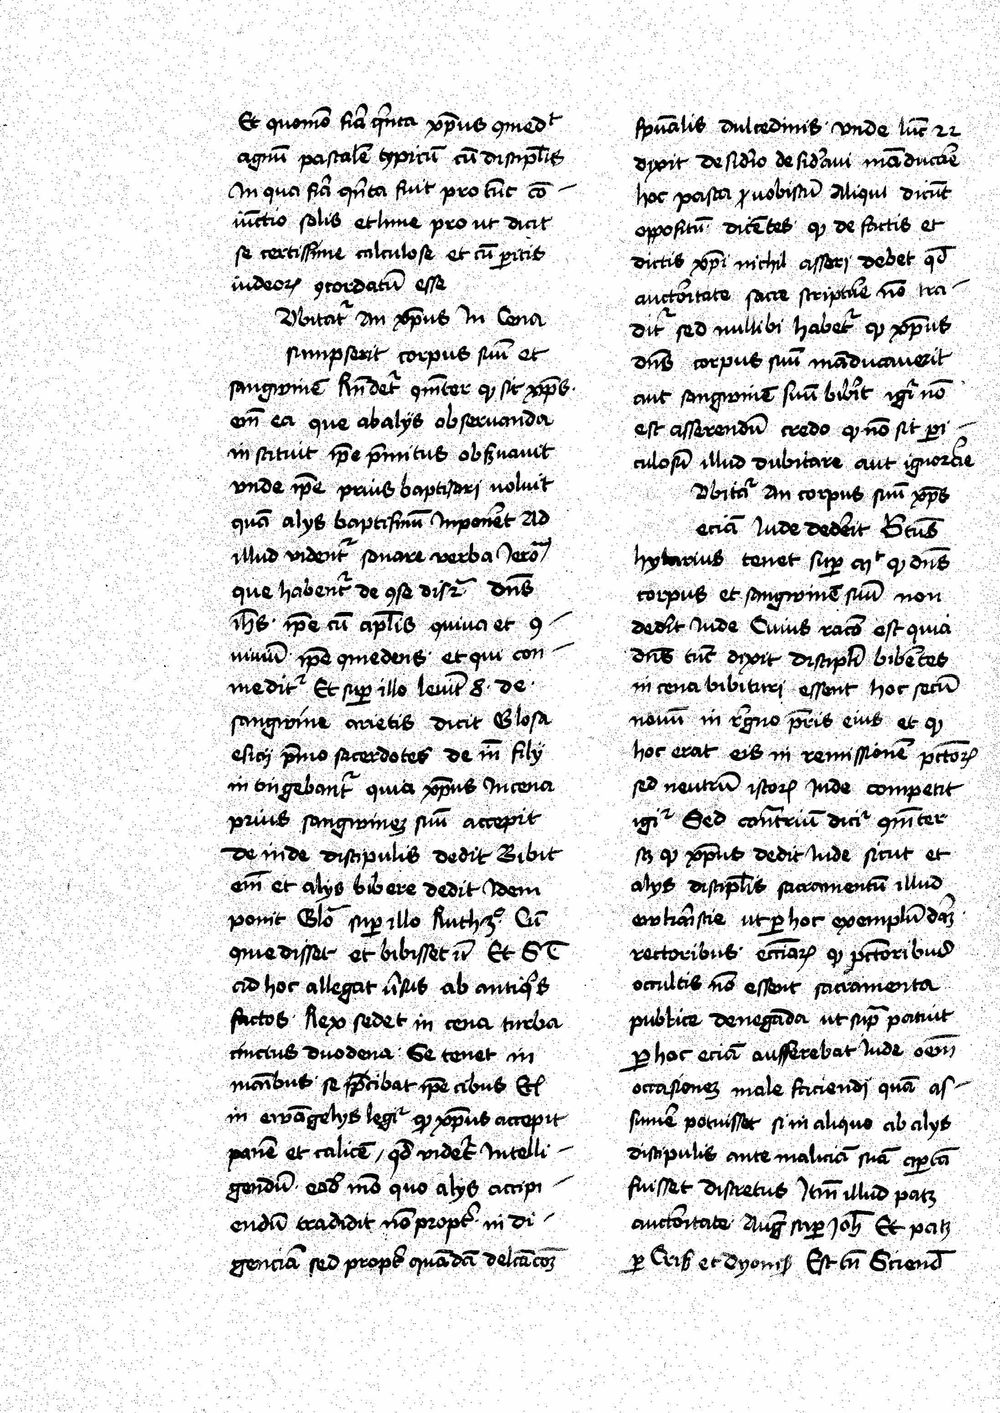 Et quomō fīa q̄nta xp̄us 9med᷑
agnū pascalē typicū cū discipl̄is
In qua fīa q̄nta fuit pro tūc cō –
iūctio solis et lune pro ut dicit
se certissime calculose et cū peritis
iudeorꝝ ꝯcordatū esse
Dubitat᷑ An xp̄us In Cena
sumpserit corpus suū et
sangwinē Rn̄det᷑ qm̄ter ꝙ sic xp̄s
em̄ ea que ab alijs observanda
instituit ip̄e p̄mitus obs̄uauit
vnde ip̄e prius baptisari uoluit
quā alijs baptismū Inponeret Ad
illud vident᷑ sonare verba Ierōi
que habent᷑ de ꝯse dis 2 dn̄s
ih̄s ip̄e cū ap̄lis ꝯuiua et ꝯ –
uiuiū ip̄e ꝯmedens et qui con –
medit᷑ Et suꝑ illo leuit̄ 8 de
sangwine arietis dicit Glosa
efici p̄mo sacerdotes de in̄ filij
intingebant᷑ quia xp̄us In cena
prius sangwineꝫ suū accepit
deinde discipulis dedit Bibit
em̄ et alijs bibere dedit Idem
ponit Glō suꝑ illo Ruth 3° Cū
ꝯmedisset et bibisset ūi Et S T
ad hoc allegat ūsus ab antiq̄s
factos Rex sedet in cena turba
cinctus duodena Se tenet in
manibus se cibat ip̄e cibus Etꝭ
in ewāgelijs legit᷑ ꝙ xp̄us accepit
panē et calicē / qd̄ videt᷑ Intelli –
gendū eod̄ mō quo alijs accipi –
endū tradidit nō propt̄ indi –
genciā sed propt̄ quādā delcācōeꝫ
sp̄ualis dulcedinis vnde luc̄ 22
dixit desid̄io desid̄aui mād̄ucare
hoc pasca vobiscū Aliqui dicūt
oppositū dicētes ꝙ de factis et
dictis xp̄i nichil asseri debet qd̄
auctoritate sacre scripture nō tra –
dit᷑ sed nullibi habet᷑ ꝙ xp̄us
dn̄s corpus suū māducauerit
aut sangwinē suū biberit igi᷑ nō
est asserendū credo ꝙ nō sit peri –
culosū illud dubitare aut ignorare
Dubita᷑ An corpus suū xp̄s
eciā Iude dederit Btūs
hylarius tenet suꝑ mt ꝙ dn̄s
corpus et sangwinē suū non
dedit Iude Cuius racō est quia
dn̄s tūc dixit discipl̄i bibētes
in cena bibituri essent hoc secū
nouū in regno p̄ris eius et ꝙ
hoc erat eis in remissionē pctōrꝝ
sed neutrū istorꝝ Iude competit
igi᷑ Sed contrariū dicit᷑ qm̄ter
sꝫ ꝙ xp̄us dedit Iude sicut et
alijs discipl̄is sacramentū illud
ewkaristie ut ꝑ hoc exemplū daꝫ
rectoribus eccīarꝝ ꝙ pctōribus
occultis nō essent sacramenta
publice denegāda ut sup̄ patuit
ꝑ hoc eciā aufferebat Iude oem̄
occasionem male faciendi quā as –
sumē potuisset si in aliquo ab alijs
discipulis ante maliciā suā apertā
fuisset discretus Itm̄ illud pateꝫ
auctoritate Auḡ suꝑ Ioh̄ Et patꝫ
ꝑ Cris̄ et Dyonis̄ Est tn̄ Sciend̄